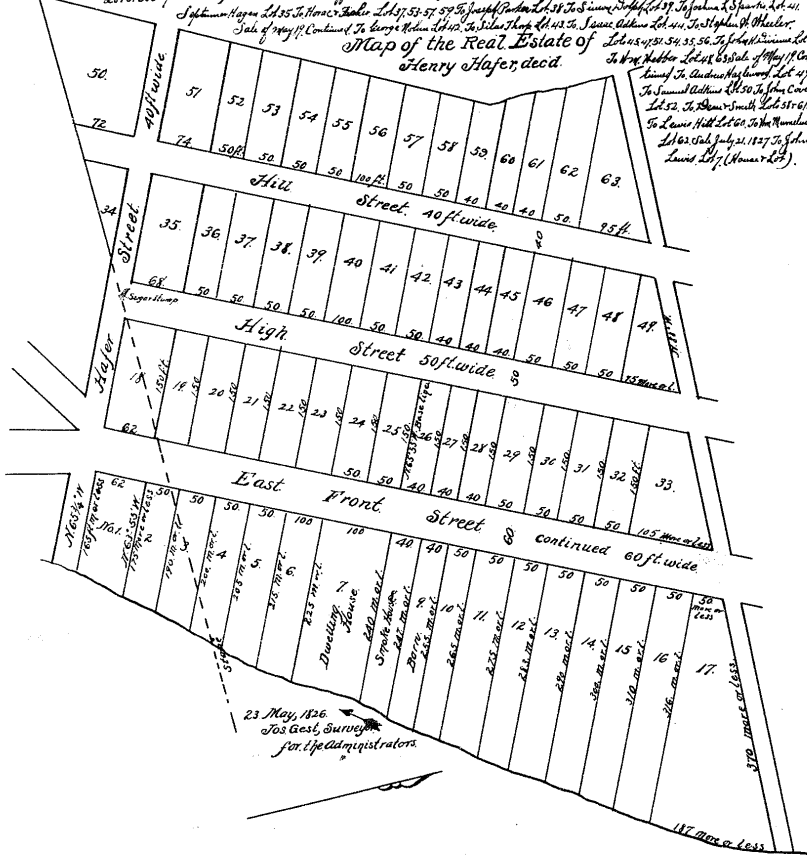 Septimus Hagen Lot 35 To Horace Fisher. Lot 37.53.57.59 To Joseph Parker Lot 38 To Simon Lot 39 To Joshua L Sparks. Lot 41.
Sale of May 19 Continued To George Nolin Lot 42. To Silas Thorp Lot 43 To Isaac Adkins Lot 44. To Stephen Wheeler.
Map of the Real Estate of
Henry Hafer, dec'd.
Lot 45.47.51.54.35.56. To John
To Wm. Webber Lot 48.63 Sale of May 19. Con
tinued To Andrew Lot 49
To Samuel Adkins Lot 50 To John Cove
Lot 52. To Smith Lots 58 & 61
To Lewis Hill Lot 60, To Wm
Lot 62. Sale July 21. 1827 To John
Lewis, Lot 7. (House & Lot).
50.
72
40 ft wide.
51 52 53 54 55 56 57 58 59. 60 61 62 63.
74 50 ft. 50. 50 50 100 ft. 50 50 40 40 40 50. 95 ft.
Hill Street 40 ft wide.
40
34
35. 36. 37. 38. 39. 40 41 42. 43 44 45 46 47 48 49.
68. 50 50 50. 50 100. 50 50 40 40 40. 50 50 50 75 more or l.
A Sugar Stump
Hafer Street.
High Street 50 ft. wide
50
18. 19. 20 21 22 23 24 25 26 27 28 29 30 31 32 33.
150 ft 150 150 150 150 150 150 150 150 150 150 150 150 150 ft
Base line
62 50 50 40 40 40 50 50 50 50 105 more or less
East Front Street continued 60 ft. wide
60
N 65 1/4° W
165 ft m or less
62 50 50 50. 50. 100 100 40. 40 50 50 50 50 50 50 50 50
more or less
No 1. 2 3 4 5. 6. 7. 8. 9. 10 11. 12 13. 14. 15 16 17.
N. 63° 55' W
175 more or less
190 m or l.
200. m or l.
205 m or l.
215. m or l.
225 m or l.
Dwelling House
240 m or l.
Smoke House
247 m or l.
Barn.
255 m or l.
265 m or l.
275 m or l.
283 m or l.
290 m or l.
300 m or l.
310 m or l.
316 m or l.
370 more or less.
187 more or less
Stone
23 May, 1826.
Jos. Gest, Surveyor
for. the Administrators.